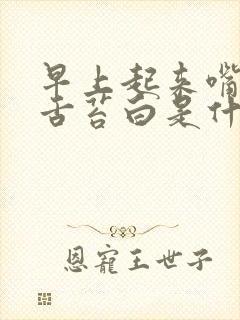 早上起来嘴
舌苔白是什
恩宠王世子